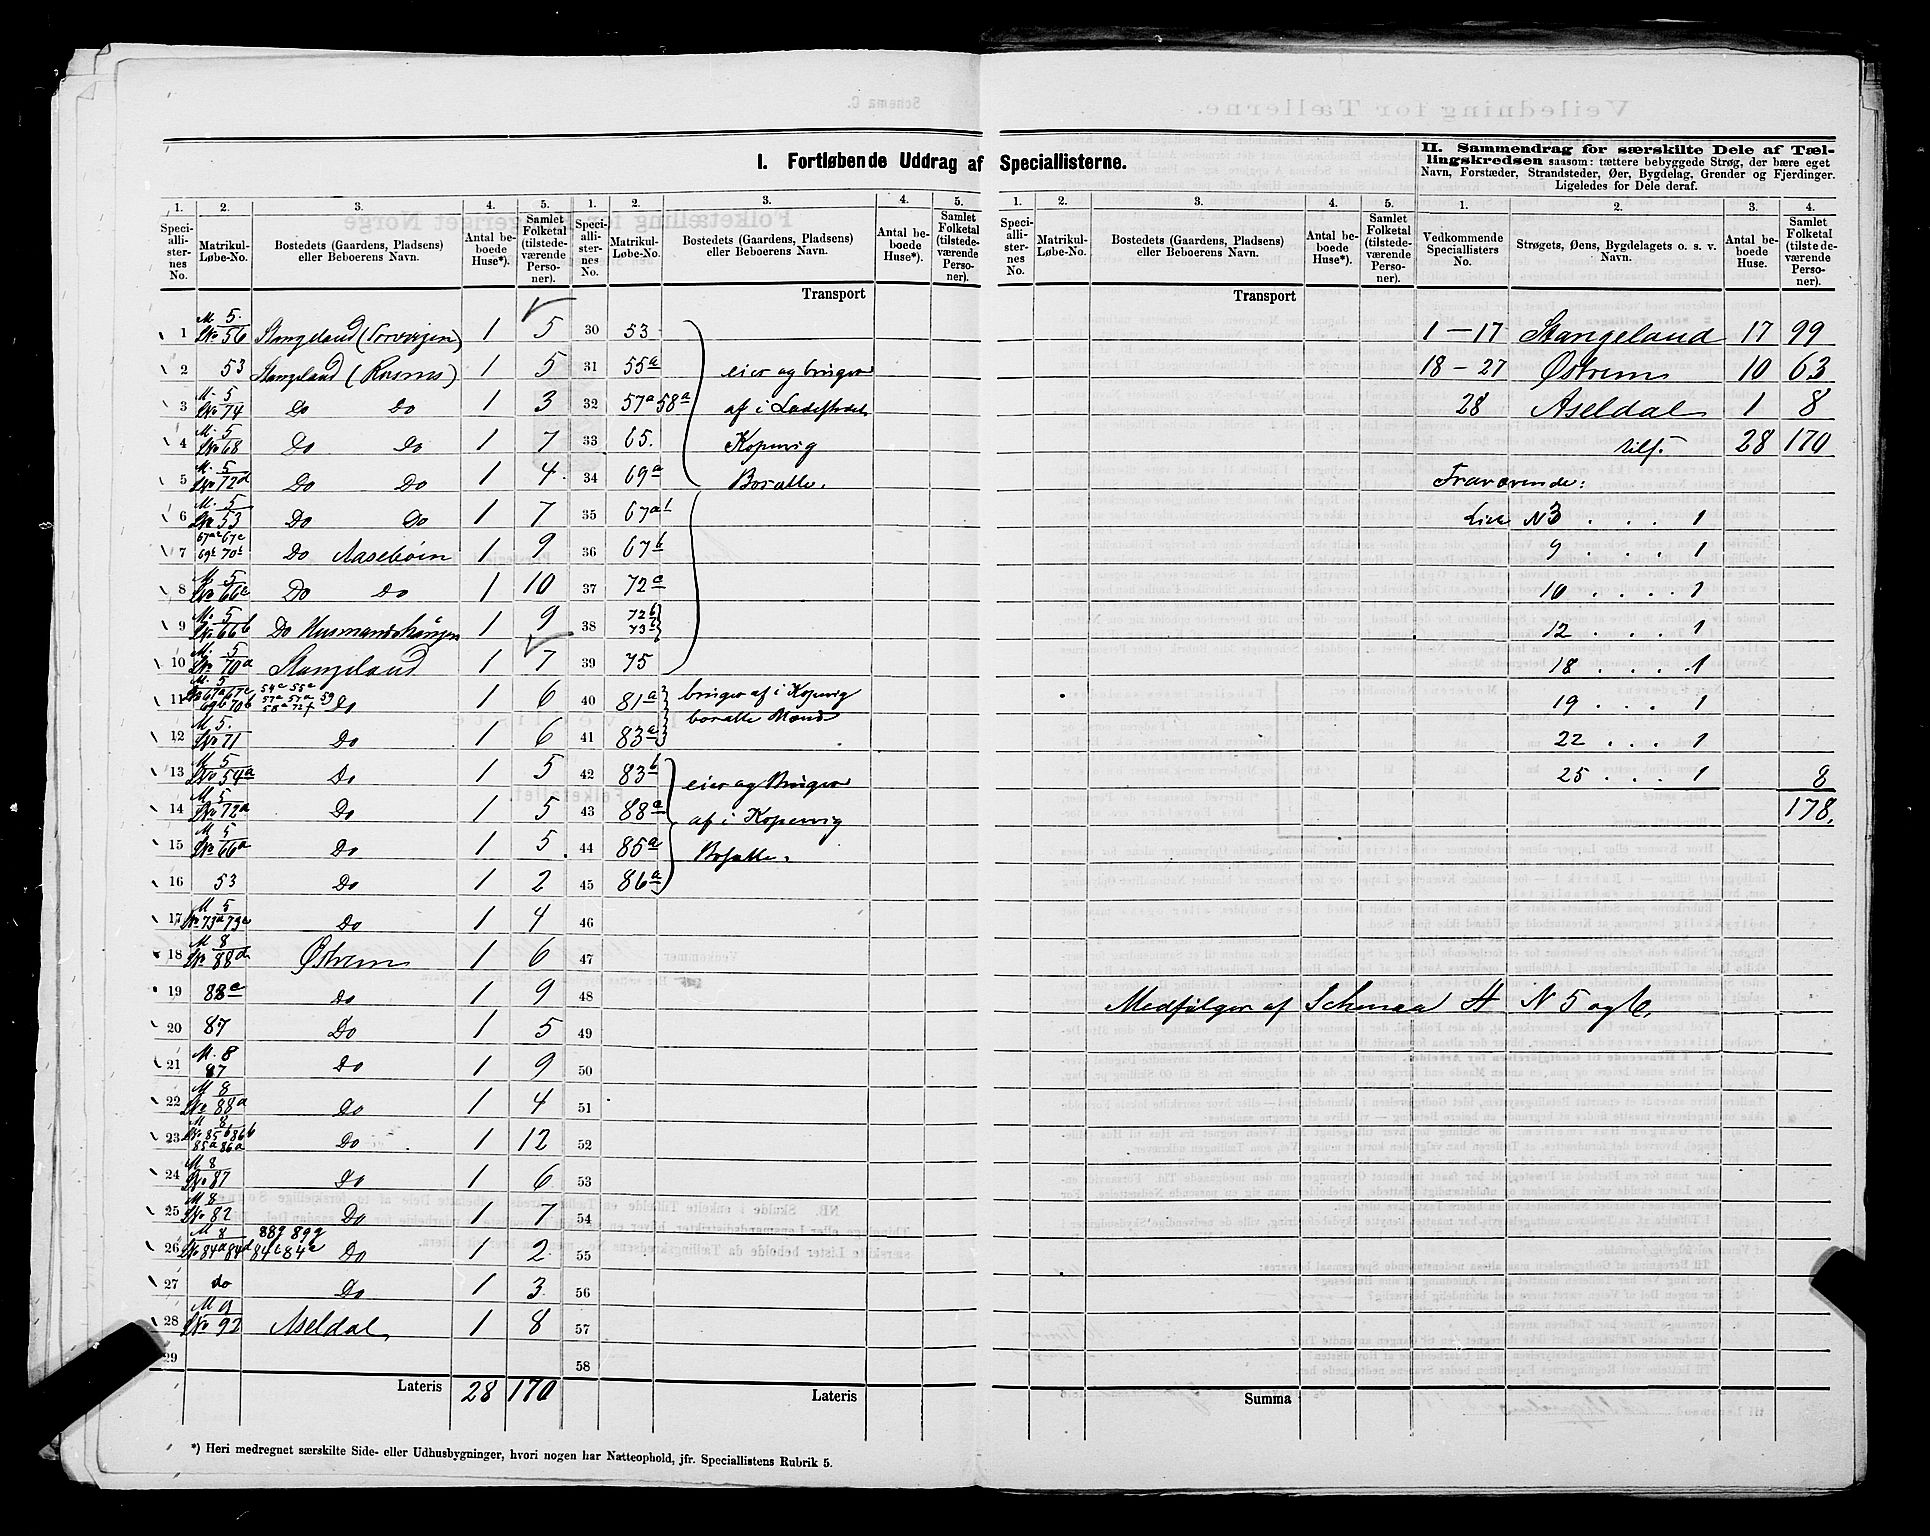 I. Fortløbende Uddrag af Speciallisterne.
1. Speciallisternes No.
2. Matrikul-Løbe-No.
3. Bostedets (Gaardens, Pladsens) eller Beboerens Navn.
4. Antal beboede Huse*).
5. Samlet Folketal (tilstedeværende Personer).
1 M 5. LNo 56 Stangeland 1 5
2 53 Stangeland 1 5
3 M. 5 LNo 74 Do Do 1 3
4 M. 5 LNo 68 Do Do 1 7
5 M. 5 LNo 72d Do Do 1 4
6 M. 5 LNo 53 Do Do 1 7
7 Do Aasebøin 1 9
8 M. 5 Do Do 1 10
9 M. 5 LNo 66b Do 1 9
10 M. 5 LNo 70a Stangeland 1 7
11 M. 5 Do 1 6
12 M 5. LNo 71 Do 1 6
13 M 5 LNo 54a Do 1 5
14 M 5 LNo 72a Do 1 5
15 M 5 LNo 66a Do 1 5
16 53 Do 1 2
17 M 5 Do 1 4
18 M 8 LNo 88d Østrem 1 6
19 Do 1 9
20 87 Do 1 5
21 M. 8 87 Do 1 9
22 M 8 LNo 88a Do 1 4
23 M 8, LNo 85b 86b 85a 86a Do 1 12
24 M 8 LNo 87 Do 1 6
25 M 8 LNo 82 Do 1 7
26 M 8 Do 1 2
27 do Do 1 3
28 M 9 LNo 92 Aseldal 1 8
29
Lateris 28 170
*) Heri medregnet særskilte Side- eller Udhusbygninger, hvori nogen har Natteophold, jfr. Speciallistens Rubrik 5.
1. Speciallisternes No.
2. Matrikul-Løbe-No.
3. Bostedets (Gaardens, Pladsens) eller Beboerens Navn.
4. Antal beboede Huse*).
5. Samlet Folketal (tilstedeværende Personer).
Transport
30 53
31 55a eier og bruger
32 57a 58a af i Ladestedet
33 65. Kopervig
34 69a Bosatte.
35
36 67b
37
38 72b 73b
39 75
40 81a bruges af i Kopervig
41 83a bosatte Mænd
42 83b eier og Bruger
43 88 af i Kopervig
44 85a Bosatte.
45 86a
46
47
48
49
50
51
52
53
54
55
56
57
58
Lateris
1. Speciallisternes No.
2. Matrikul-Løbe-No.
3. Bostedets (Gaardens, Pladsens) eller Beboerens Navn.
4. Antal beboede Huse*).
5. Samlet Folketal (tilstedeværende Personer).
Transport
Medfølger af Schema H N 5 og 6.
Summa
II. Sammendrag for særskilte Dele af Tællingskredsen saasom: tættere bebyggede Strøg, der bære eget
Navn, Forstæder, Strandsteder, Øer, Bygdelag, Grender og Fjerdinger.
Ligeledes for Dele deraf.
1. Vedkommende Speciallisters No.
2. Strøgets, Øens, Bygdelagets o. s. v. Navn.
3. Antal beboede Huse.
4. Samlet Folketal (tilstedeværende Personer).
1 - 17 Stangeland 17 99
18 - 27 Østrem 10 63
28 Aseldal 1 8
tils. 28 170
Fraværende:
Liste N 3 . . . . 1
9 . . . . 1
10 . . . . 1
12 . . . . 1
18 . . . 1
19 . . . 1
22 . . . 1
25 . . . 1 8
178.